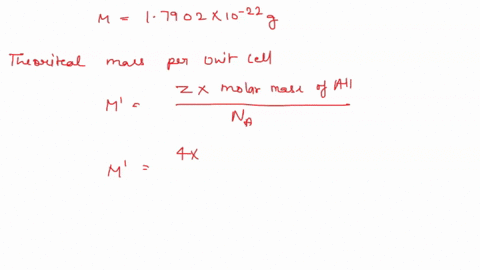 M = 1.7902 × 10⁻²² g
Theoritical mass per unit cell
M' = Z × molar mass of All / N_A
M' = 4×